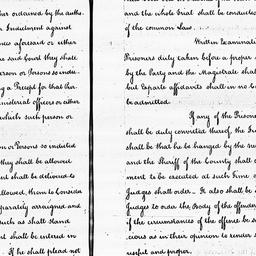 ther ordained by the autho.
r Indictment against
nces aforesaid or either
he said Court they shall
erson or Persons so indic
ng a Precept for that Pur.
inisterial officers or either
which such person or
n or Persons so indicted
they shall be allowed
ent shall be delivered to
allowed, them to Consider
eparately arraigned and
such as shall stand
nt shall be entered in
. If he shall plead not
and the whole trial shall be conducted
of the common Law.
Written Examinati
Prisoners duly taken before a proper
by the Party and the Magistrate shall
but Exparte affidavits shall in no C
be admitted.
If any of the Prisone
shall be duly convicted thereof, the Ju
shall be that he be hanged by the ne
and the Sheriff of the County shall c
ment to be executed at such Time a
Judges shall order. It also shall be
Judges to order the Body of the offende
if the circumstances of the offence be s
cious as in their opinion to render s
useful and proper.